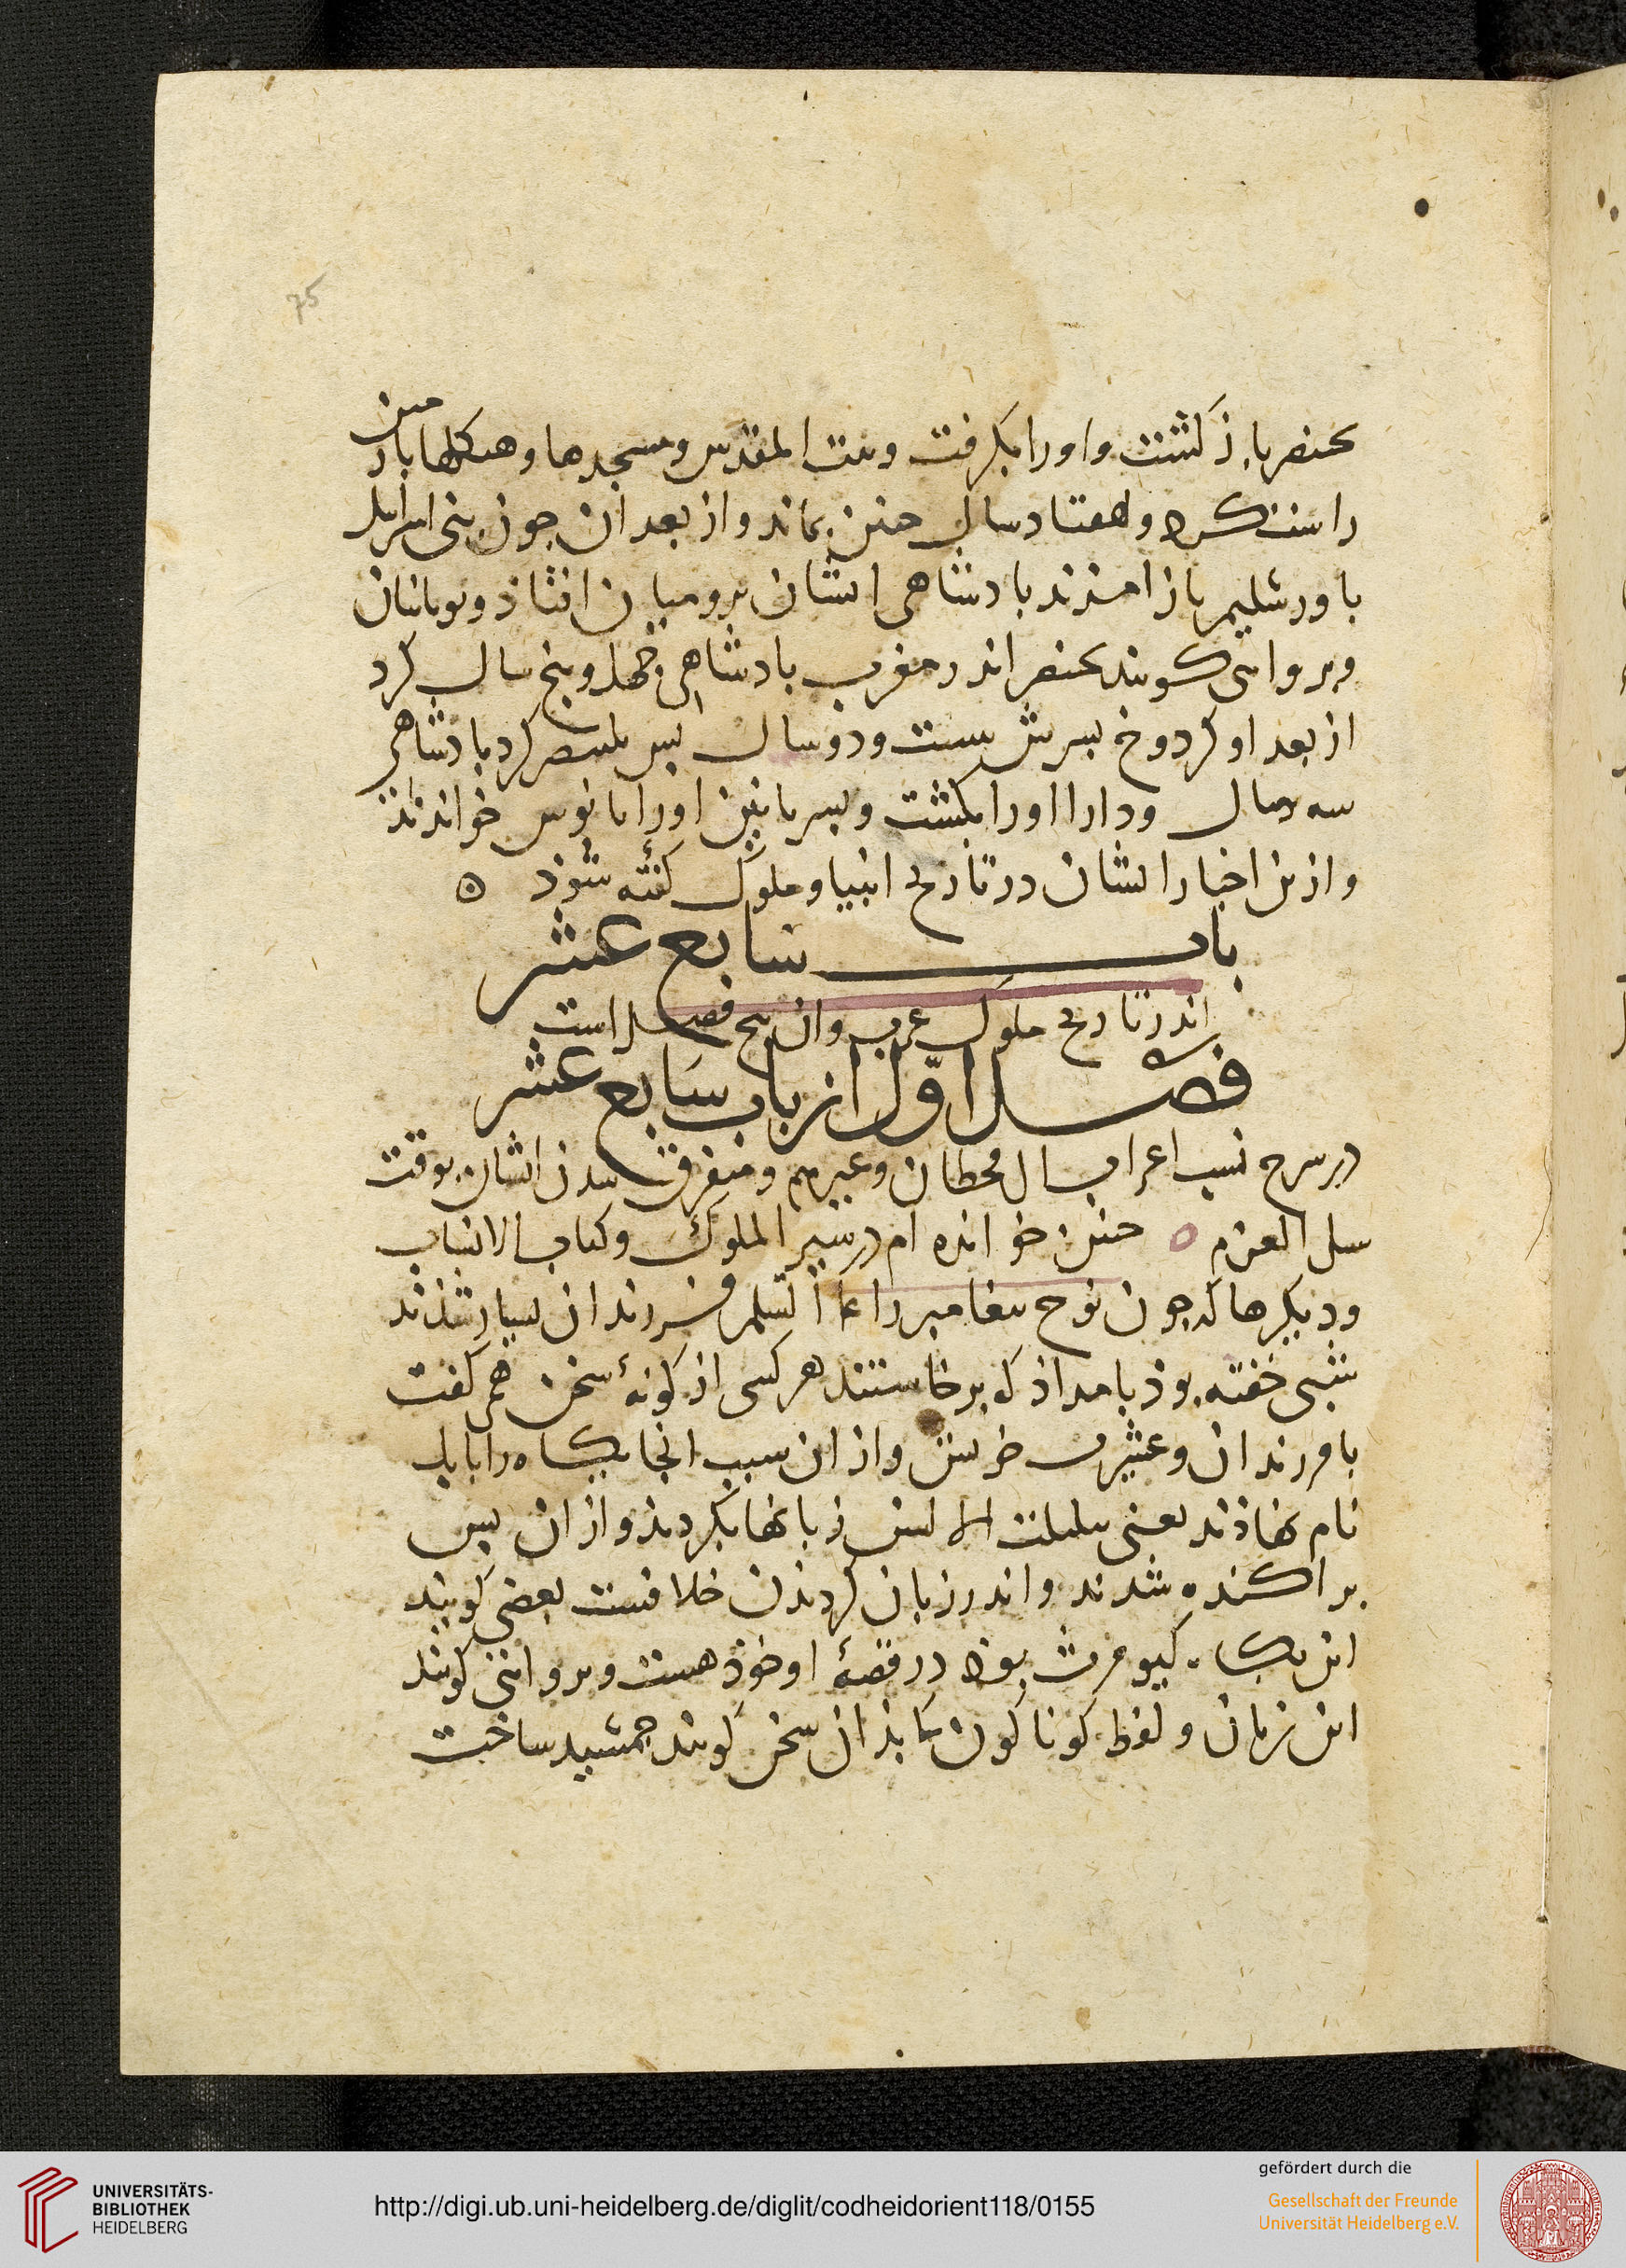 75
بختنصر باز گشت و او را بگرفت و بیت المقدس و مسجدها و هیکلها با زمین
راست کرد و هفتاد سال چنین بماند و از بعد آن چون بنی اسرایل
باورشلیم باز آمدند پادشاهی ایشان برومیان افتاذ و یونانیان
و بروایتی گویند بختنصر اندر مغرب پادشاهی چهل و پنج سال کرد
از بعد او کردوخ پسرش بیست و دو سال پس بلتنصر کرد پادشاهی
سه سال و دارا او را بکشت و بسریانیین او را نابونوس خواندند
و ازین اخبار ایشان در تاریخ انبیا و ملوک گفته شوذ ه
باب سابع عشر
اندر تاریخ ملوک عرب و آن پنج فصل است
فصل اوّل از باب سابع عشر
در شرح نسب اعراب آل قحطان و غیرهم و متفرق شدن ایشان بوقت
سیل العرم ه چنین خوانده ام در سیر الملوک و کتاب الانساب
و دیگرها که چون نوح پیغامبر را علیه السلم فرزندان بسیار شذند
شبی خفته بوذ بامداذ که برخاستند هر کسی از گونهٔ سخن همی گفت
با فرزندان و عشیرت خویش و از آن سبب آنجایگاه را بابل
نام نهاذند یعنی تبلبلت الالسن زبانها بگردیذ و از آن پس
پراکنده شدند و اندر زبان گردیدن خلافست بعضی گویند
این بگاه کیومرث بوذ در قصهٔ او خوذ هست و بروایتی گویند
این زبان و لفظ گوناگون که بذان سخن گویند جمشید ساخت
UNIVERSITÄTS-
BIBLIOTHEK
HEIDELBERG
http://digi.ub.uni-heidelberg.de/diglit/codheidorient118/0155
gefördert durch die
Gesellschaft der Freunde
Universität Heidelberg e.V.